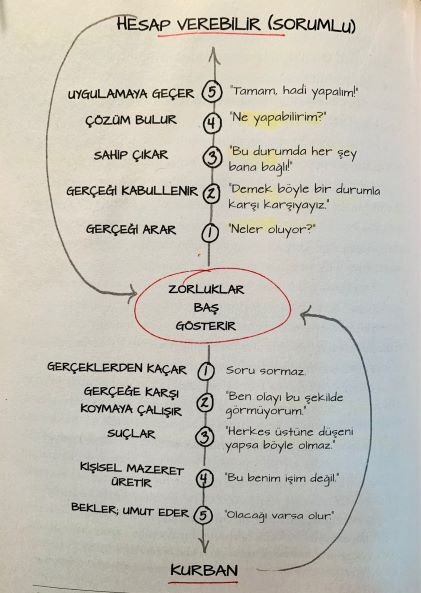 HESAP VEREBİLİR (SORUMLU)
UYGULAMAYA GEÇER 5 "Tamam, hadi yapalım!"
ÇÖZÜM BULUR 4 "Ne yapabilirim?"
SAHİP ÇIKAR 3 "Bu durumda her şey
bana bağlı!"
GERÇEĞİ KABULLENİR 2 "Demek böyle bir durumla
karşı karşıyayız."
GERÇEĞİ ARAR 1 "Neler oluyor?"
ZORLUKLAR
BAŞ
GÖSTERİR
GERÇEKLERDEN KAÇAR 1 Soru sormaz.
GERÇEĞE KARŞI
KOYMAYA ÇALIŞIR 2 "Ben olayı bu şekilde
görmüyorum."
SUÇLAR 3 "Herkes üstüne düşeni
yapsa böyle olmaz."
KİŞİSEL MAZERET
ÜRETİR 4 "Bu benim işim değil."
BEKLER, UMUT EDER 5 "Olacağı varsa olur."
KURBAN